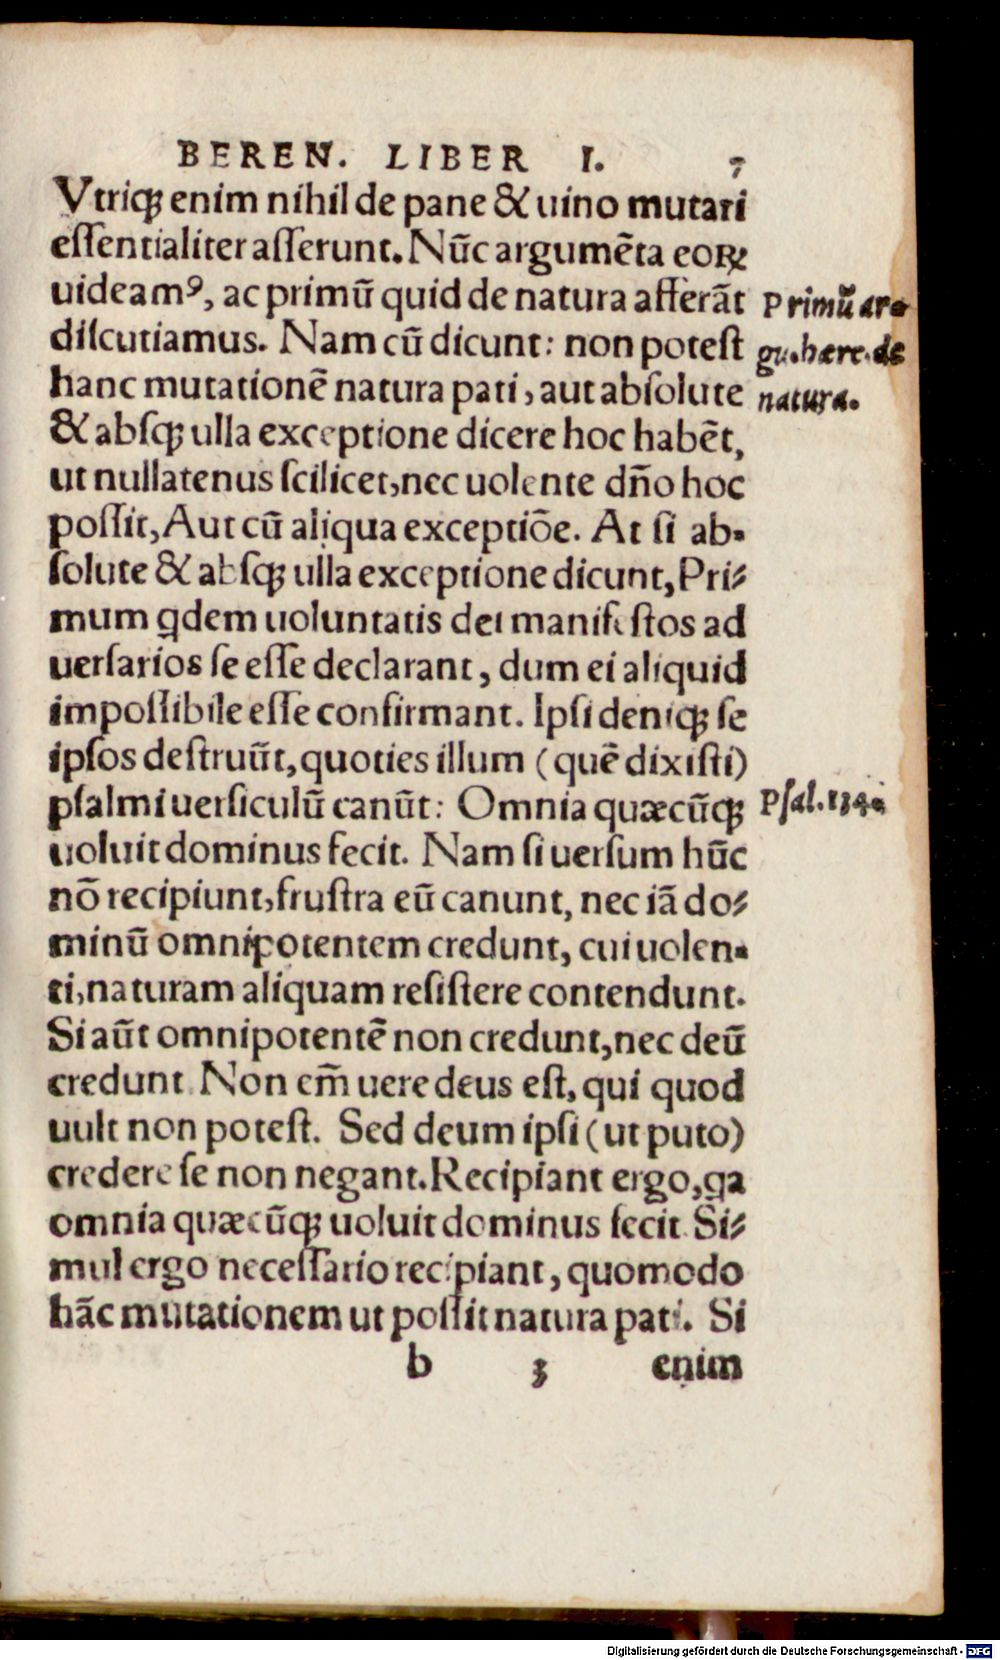 BEREN. LIBER I. 7
Vtriq; enim nihil de pane & uino mutari
eſſentialiter aſſerunt. Nūc argumēta eoꝝ
uideamꝰ, ac primū quid de natura afferāt
diſcutiamus. Nam cū dicunt: non poteſt
hanc mutationē natura pati, aut abſolute
& abſq; ulla exceptione dicere hoc habēt,
ut nullatenus ſcilicet, nec uolente dño hoc
poſſit, Aut cū aliqua exceptiōe. At ſi ab-
ſolute & abſq; ulla exceptione dicunt, Pri-
mum qdem uoluntatis dei manifeſtos ad
uerſarios ſe eſſe declarant, dum ei aliquid
impoſſibile eſſe confirmant. Ipſi deniq; ſe
ipſos deſtruūt, quoties illum (quē dixiſti)
pſalmi uerſiculū canūt: Omnia quæcūq;
uoluit dominus fecit. Nam ſi uerſum hūc
nō recipiunt, fruſtra eū canunt, nec iā do-
minū omnipotentem credunt, cui uolen-
ti, naturam aliquam reſiſtere contendunt.
Si aūt omnipotentē non credunt, nec deū
credunt. Non em̄ uere deus eſt, qui quod
uult non poteſt. Sed deum ipſi (ut puto)
credere ſe non negant. Recipiant ergo, qa
omnia quæcūq; uoluit dominus fecit. Si-
mul ergo neceſſario recipiant, quomodo
hāc mutationem ut poſſit natura pati. Si
b 3 enim
Primū ar-
gu. hære. de
natura.
Pſal. 134.
Digitalisierung gefördert durch die Deutsche Forschungsgemeinschaft - DFG